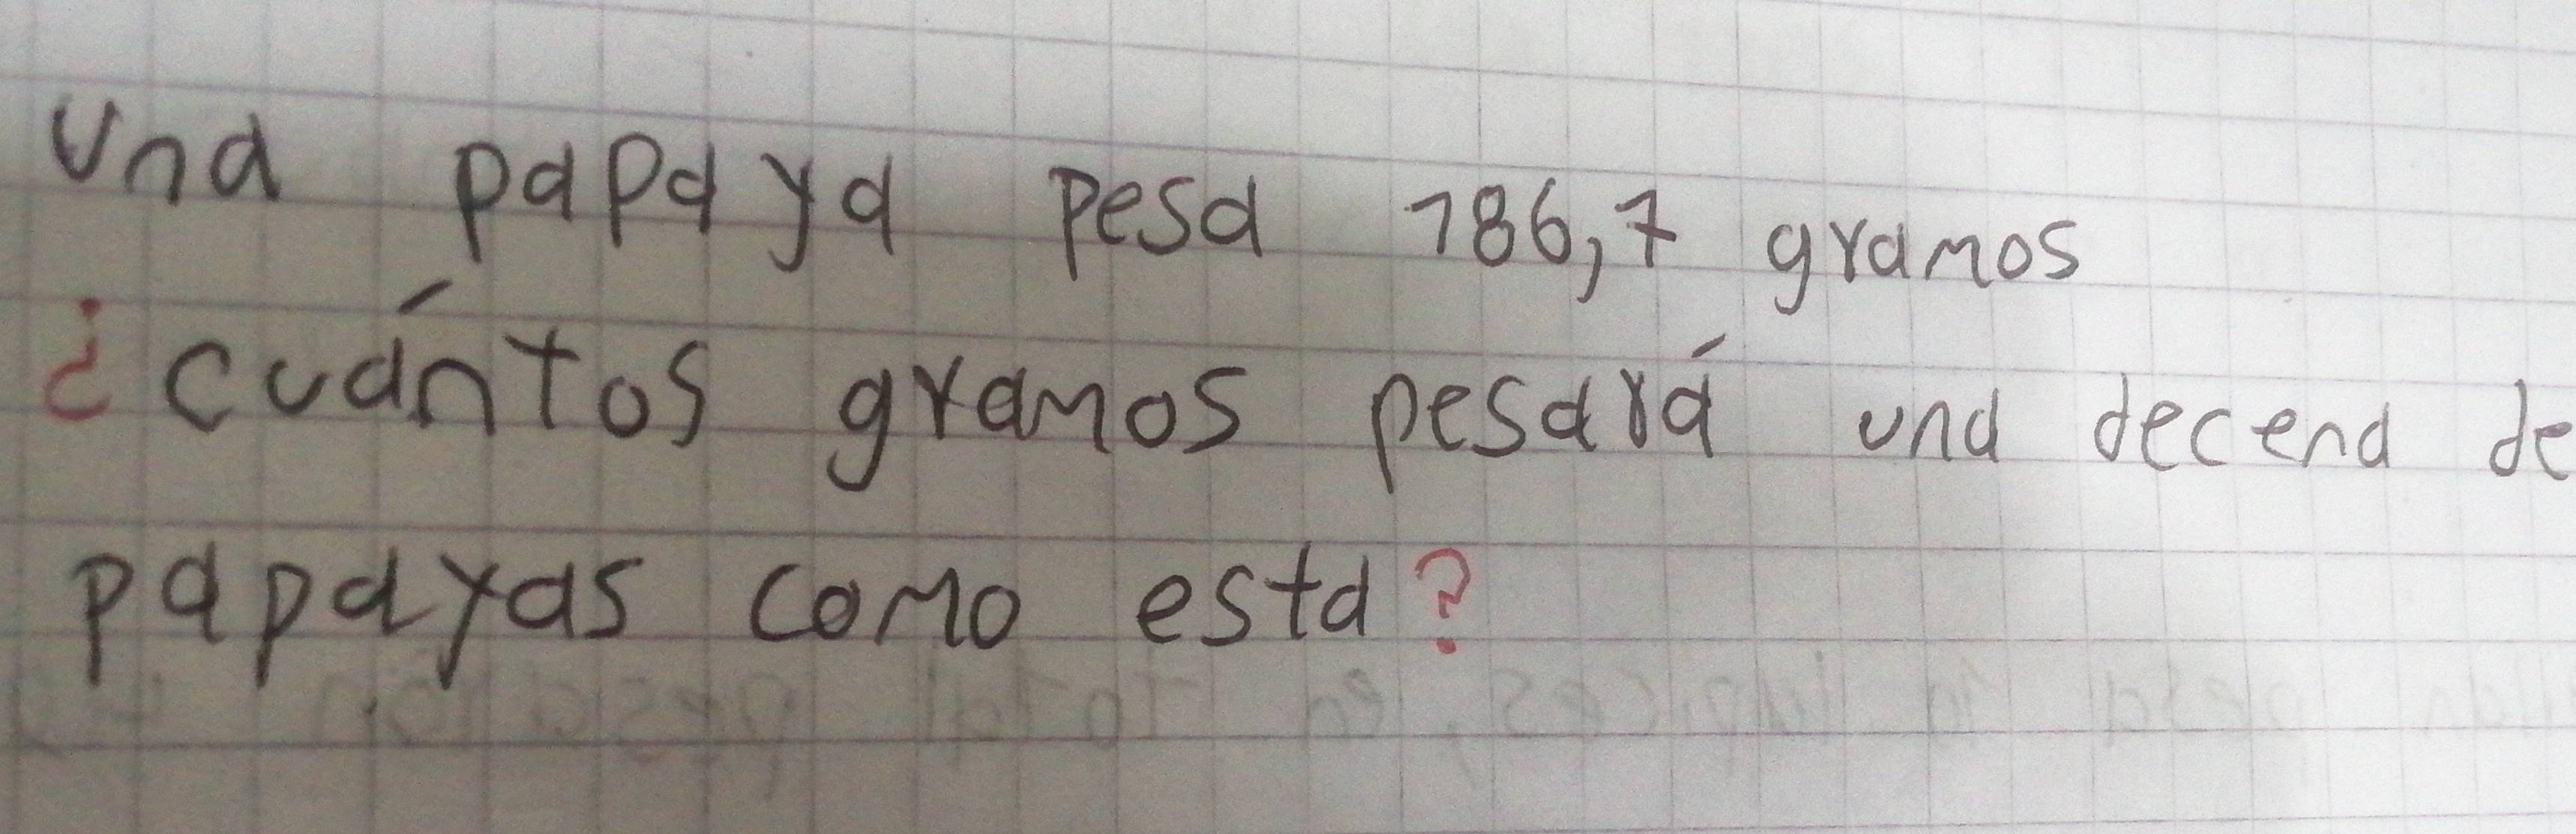 Una papaya pesa 186,7 gramos
¿cuántos gramos pesará una decena de
papayas como esta?